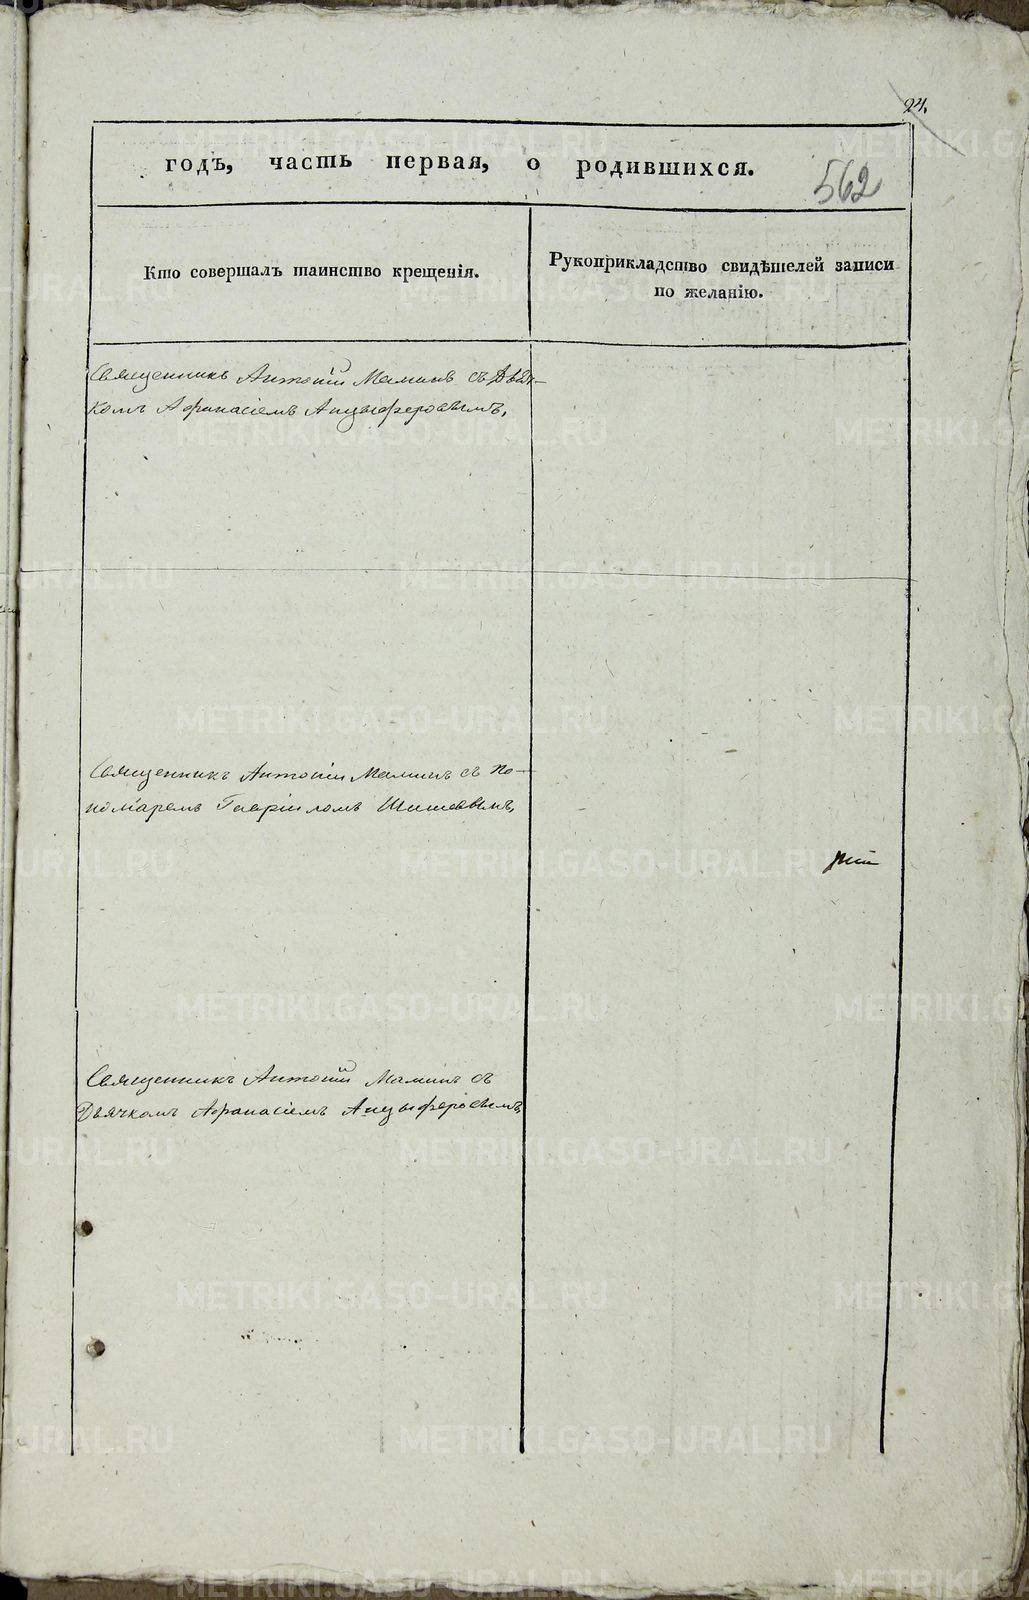 24.
годъ, часть первая, о родившихся.
562
Кто совершалъ таинство крещенія.
Рукоприкладство свидѣтелей записи
по желанію.
Священникъ Антоній Маминъ съ Дьяч-
комъ Афанасіемъ Анцыферовымъ,
Священникъ Антоній Маминъ съ По-
номаремъ Гавріиломъ Шишевымъ,
Священникъ Антоній Маминъ съ
Дьячкомъ Афанасіемъ Анцыферовымъ
METRIKI.GASO-URAL.RU